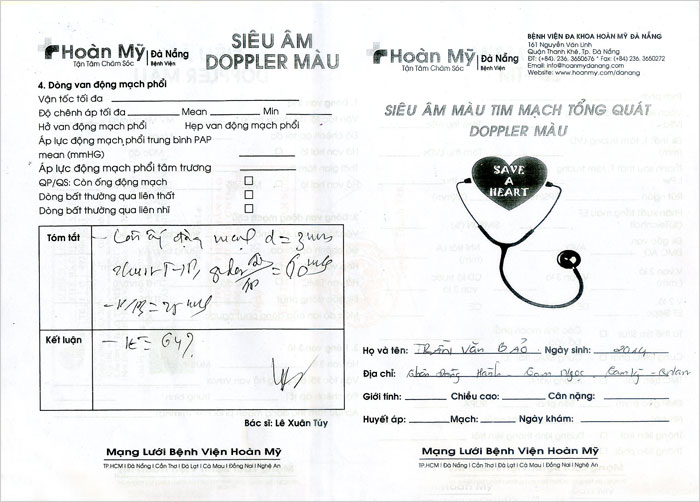 Hoàn Mỹ Đà Nẵng
Tận Tâm Chăm Sóc Bệnh Viện
SIÊU ÂM
DOPPLER MÀU
4. Dòng van động mạch phổi
Vận tốc tối đa
Độ chênh áp tối đa Mean Min
Hở van động mạch phổi Hẹp van động mạch phổi
Áp lực động mạch phổi trung bình PAP
mean (mmHG)
Áp lực động mạch phổi tâm trương
QP/QS: Còn ống động mạch
Dòng bất thường qua liên thất
Dòng bất thường qua liên nhĩ
Tóm tắt
d = 3mm
Kết luận
64%
Bác sĩ: Lê Xuân Túy
Mạng Lưới Bệnh Viện Hoàn Mỹ
TP.HCM | Đà Nẵng | Cần Thơ | Đà Lạt | Cà Mau | Đồng Nai | Nghệ An
Hoàn Mỹ Đà Nẵng
Tận Tâm Chăm Sóc Bệnh Viện
BỆNH VIỆN ĐA KHOA HOÀN MỸ ĐÀ NẴNG
161 Nguyễn Văn Linh
Quận Thanh Khê, Tp. Đà Nẵng
ĐT: (+84). 236. 3650676 * Fax: (+84). 236. 3650272
Email: info@hoanmydanang.com
Website: www.hoanmy.com/danang
SIÊU ÂM MÀU TIM MẠCH TỔNG QUÁT
DOPPLER MÀU
SAVE
A
HEART
Họ và tên: Trần Văn BẢO Ngày sinh: 2014
Địa chỉ: Tam Ngọc
Giới tính: Chiều cao: Cân nặng:
Huyết áp: Mạch: Ngày khám:
Mạng Lưới Bệnh Viện Hoàn Mỹ
TP.HCM | Đà Nẵng | Cần Thơ | Đà Lạt | Cà Mau | Đồng Nai | Nghệ An